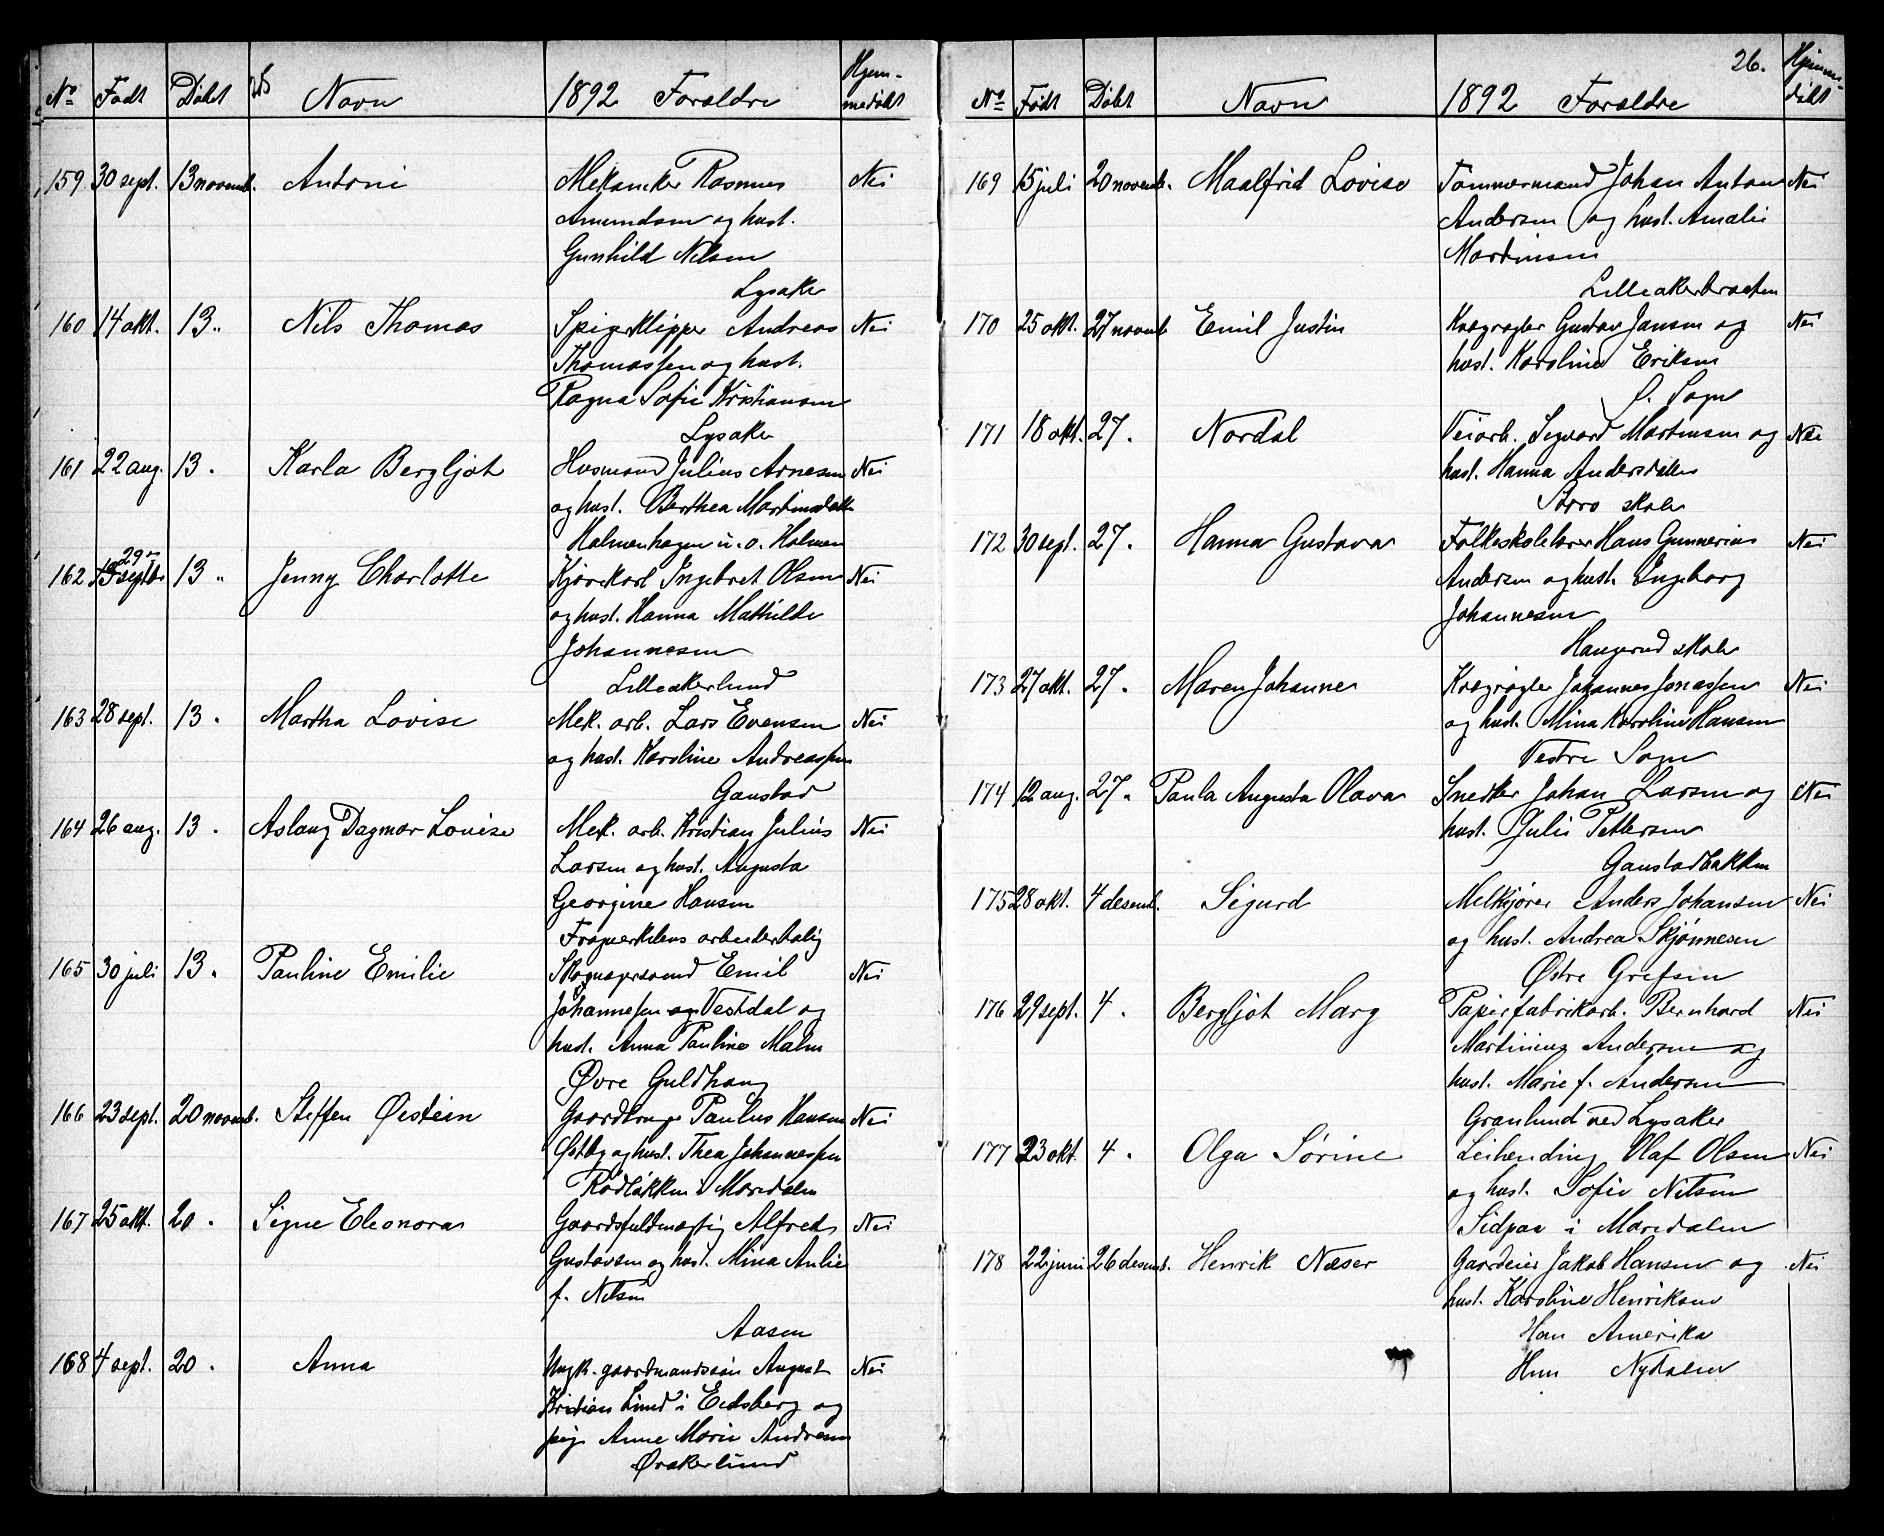 No Født Døbt Navn 1892 Forældre Hjem-
medøbt
159 30 sept. 13 novemb. Antoni Mekaniker Rasmus Nei
Amundsen og hust.
Gunhild Nilsen
Lysaker
160 14 okt. 13 „ Nils Thomas Spigerklipper Andreas Nei
Thomassen og hust.
Ragna Sofie Kristiansen
Lysaker
161 22 aug. 13 . Karla Bergljot Husmand Julius Arnesen Nei
og hust. Berthea Martinsdatter
Holmenhagen u. o. Holmen
29
162 sept. 13 „ Jenny Charlotte Kjørekarl Ingebret Olsen Nei
og hust. Hanna Mathilde
Johannesen
Lilleakerlund
163 28 sept. 13 . Martha Lovise Mek. arb. Lars Evensen Nei
og hust. Karoline Andreassen
Gaustad
164 26 aug. 13 . Aslaug Dagmar Lovise Mek. arb. Kristian Julius Nei
Larsen og hust. Augusta
Georgine Hansen
Frognerkilens arbeiderbolig
165 30 juli 13 . Pauline Emilie Emil Nei
Johannesen Vestdal og
hust. Anna Pauline Malm
Øvre Guldhaug
166 23 sept. 20 novemb. Steffen Øistein Gaardbruger Paulus Hansen Nei
Østby og hust. Thea Johannessen
Rødbakken i Maridalen
167 25 okt. 20 . Signe Eleonora Gaardsfuldmægtig Alfred Nei
Gustavsen og hust. Mina Aulie
f. Nilsen
Aasen
168 4 sept. 20 . Anna Ungk. gaardmandssøn August Nei
Kristian Lund i Eidsberg og
pige Anne Marie Andresen
Ørakerlund
26.
No Født Døbt Navn 1892 Forældre Hjemme-
døbt
169 15 juli 20 novemb. Maalfrid Lovise Tømmermand Johan Anton Nei
Andersen og hust. Amalie
Martinsen
Lilleakerbraaten
170 25 okt. 27 novemb Emil Justin Kvægrøgter Gustav Jansen og Nei
hust. Karoline Eriksen
V. Sogn
171 18 okt. 27 . Nordal Veiarb. Sigvard Martinsen og Nei
hust. Hanna Andersdatter
skole
172 30 sept. 27 . Hanna Gustava Folkeskolelærer Hans Gunnerius Nei
Andersen og hust. Ingeborg
Johannesen
Haugerud skole
173 27 okt. 27 . Maren Johanne Kvægrøgter Johannes Jonassen Nei
og hust. Mina Karoline Hansen
Vestre Sogn
174 12 aug. 27 . Paula Augusta Olava Snedker Johan Larsen og Nei
hust. Julie Pettersen
Gaustadbakken
175 28 okt. 4 desemb. Sigurd Melkjører Anders Johansen Nei
og hust. Andrea Skjønnesen
Østre Grefsen
176 29 sept. 4 . Bergljot Mary Papirfabrikarb. Bernhard Nei
Martinius Andersen og
hust. Marie f. Andersen
Granlund ved Lysaker
177 23 okt. 4 . Olga Sørine Leilending Olaf Olsen Nei
og hust. Sofie Nilsen
Sidpaa i Maridalen
178 22 juni 26 desemb. Henrik Næser Gaardeier Jakob Hansen og Nei
hust. Karoline Henriksen
Han Amerika
Hun Nydalen